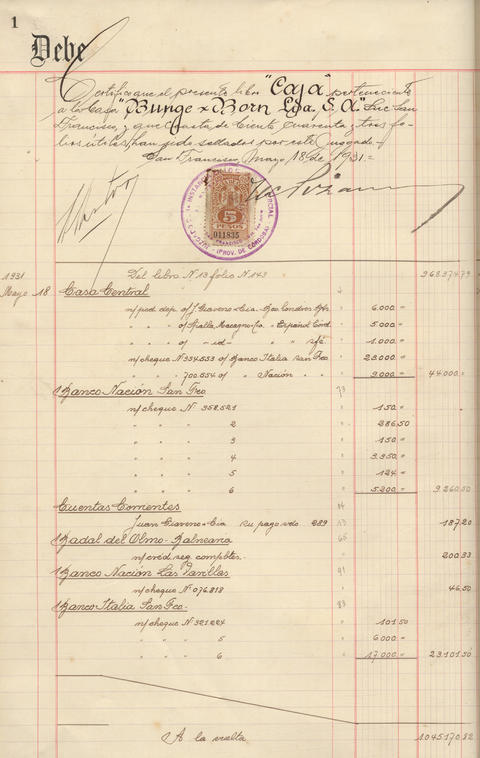 1
Debe
Certifico que el presente libro "Caja" perteneciente
a la Casa "Bunge & Born Lda. S. A." Suc. San
Francisco, y que consta de Ciento Cuarenta y tres fo-
lios útiles, han sido sellados por este Juzgado.-
San Francisco, Mayo 18 de 1931.=
5
PESOS
011835
(PROV. DE CORDOBA)
1931 Del libro N. 13 folio N. 143 96837479
Mayo 18 Casa Central
n/ped dep. o/ J. Giaveno & Cia. Bco Londres 6.000.=
" " " o/ Español 5.000.=
" " " o/ -id- " " sfé. 1.000.=
n/cheque N. 354553 o/ Banco Italia San Fco 23.000.=
" " 700.554 o/ " Nación. 9.000.= 44.000.=
Banco Nación San Fco 73
n/ cheque N. 358.521 " 150.=
" " " 2 " 286.50
" " " 3 " 150.=
" " " 4 " 3.350.=
" " " 5 " 124.=
" " " 6 " 5.200.= 9.260.50
Cuentas Corrientes 14
Juan Giaveno & Cia su pago vdo. 289 13 187.20
Badal del Olmo - Balnearia 65
n/créd seg. compbtes. " 200.33
Banco Nación Las Varillas 91
n/cheque No. 076.818 " 46.50
Banco Italia San Fco. 83
n/ cheque N. 321224 " 101.50
" " " 5 " 6.000.=
" " " 6 " 17.000.= 23.101.50
A la vuelta 1.045.170.82